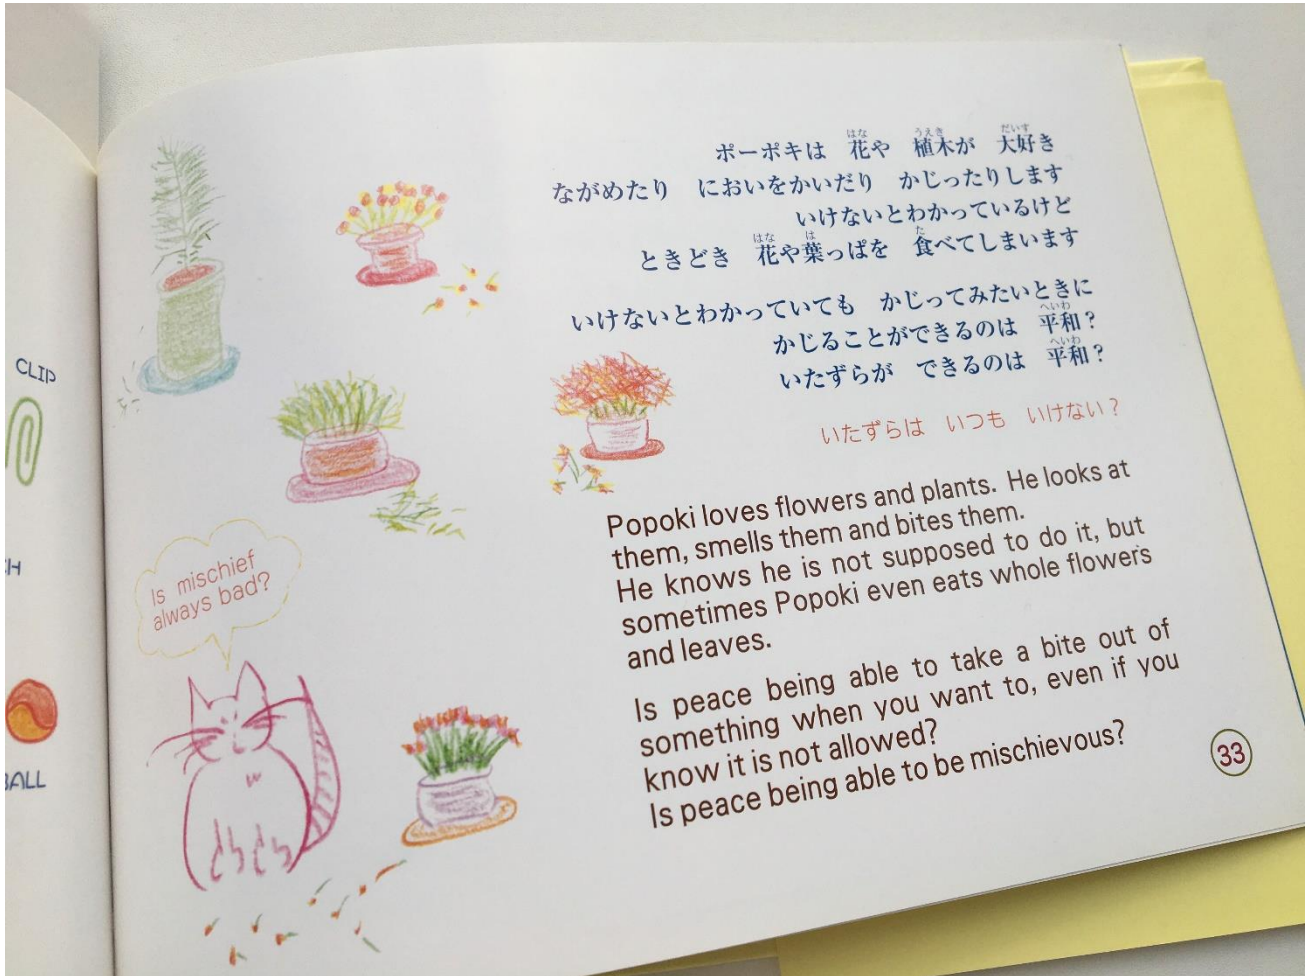 CLIP
ポーポキは 花や 植木が 大好き
ながめたり においをかいだり かじったりします
いけないとわかっているけど
ときどき 花や葉っぱを 食べてしまいます
いけないとわかっていても かじってみたいときに
かじることができるのは 平和？
いたずらが できるのは 平和？
いたずらは いつも いけない？
Popoki loves flowers and plants. He looks at
them, smells them and bites them.
He knows he is not supposed to do it, but
sometimes Popoki even eats whole flowers
and leaves.
Is peace being able to take a bite out of
something when you want to, even if you
know it is not allowed?
Is peace being able to be mischievous?
Is mischief
always bad?
33